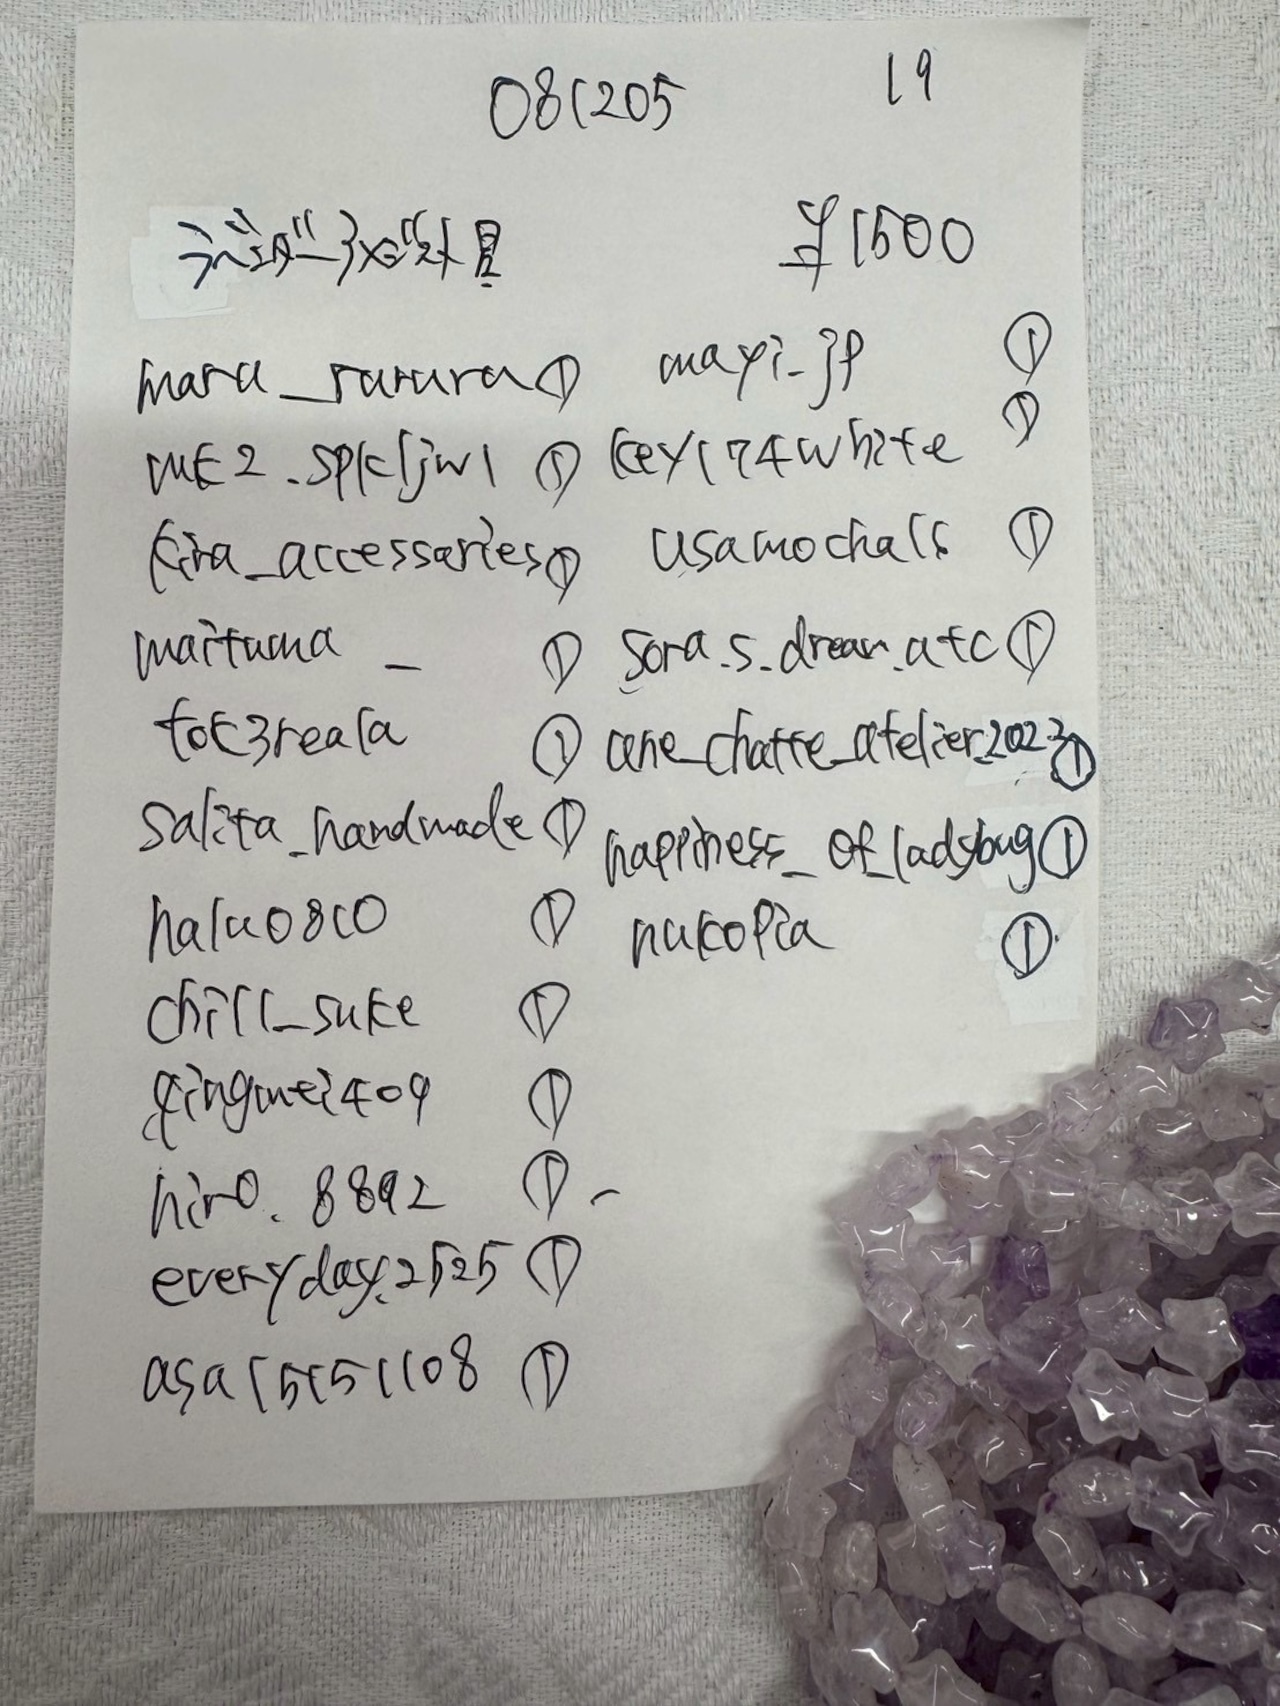 081205
19
ラベンダーアメジスト星
¥1500
maru_rurura ①
me2.spkljw1 ①
kira_accessaries ①
maituma_ ①
tok3reala ①
salita_handmade ①
halu0810 ①
chill_suke ①
qingmei409 ①
hiro.8892 ①
everyday.2525 ①
asa15151108 ①
mayi_jp ①
key174white ①
usamocha16 ①
sora.s.dream.atc ①
une_chatte_atelier.2023 ①
happiness_of_ladybug ①
nukopia ①